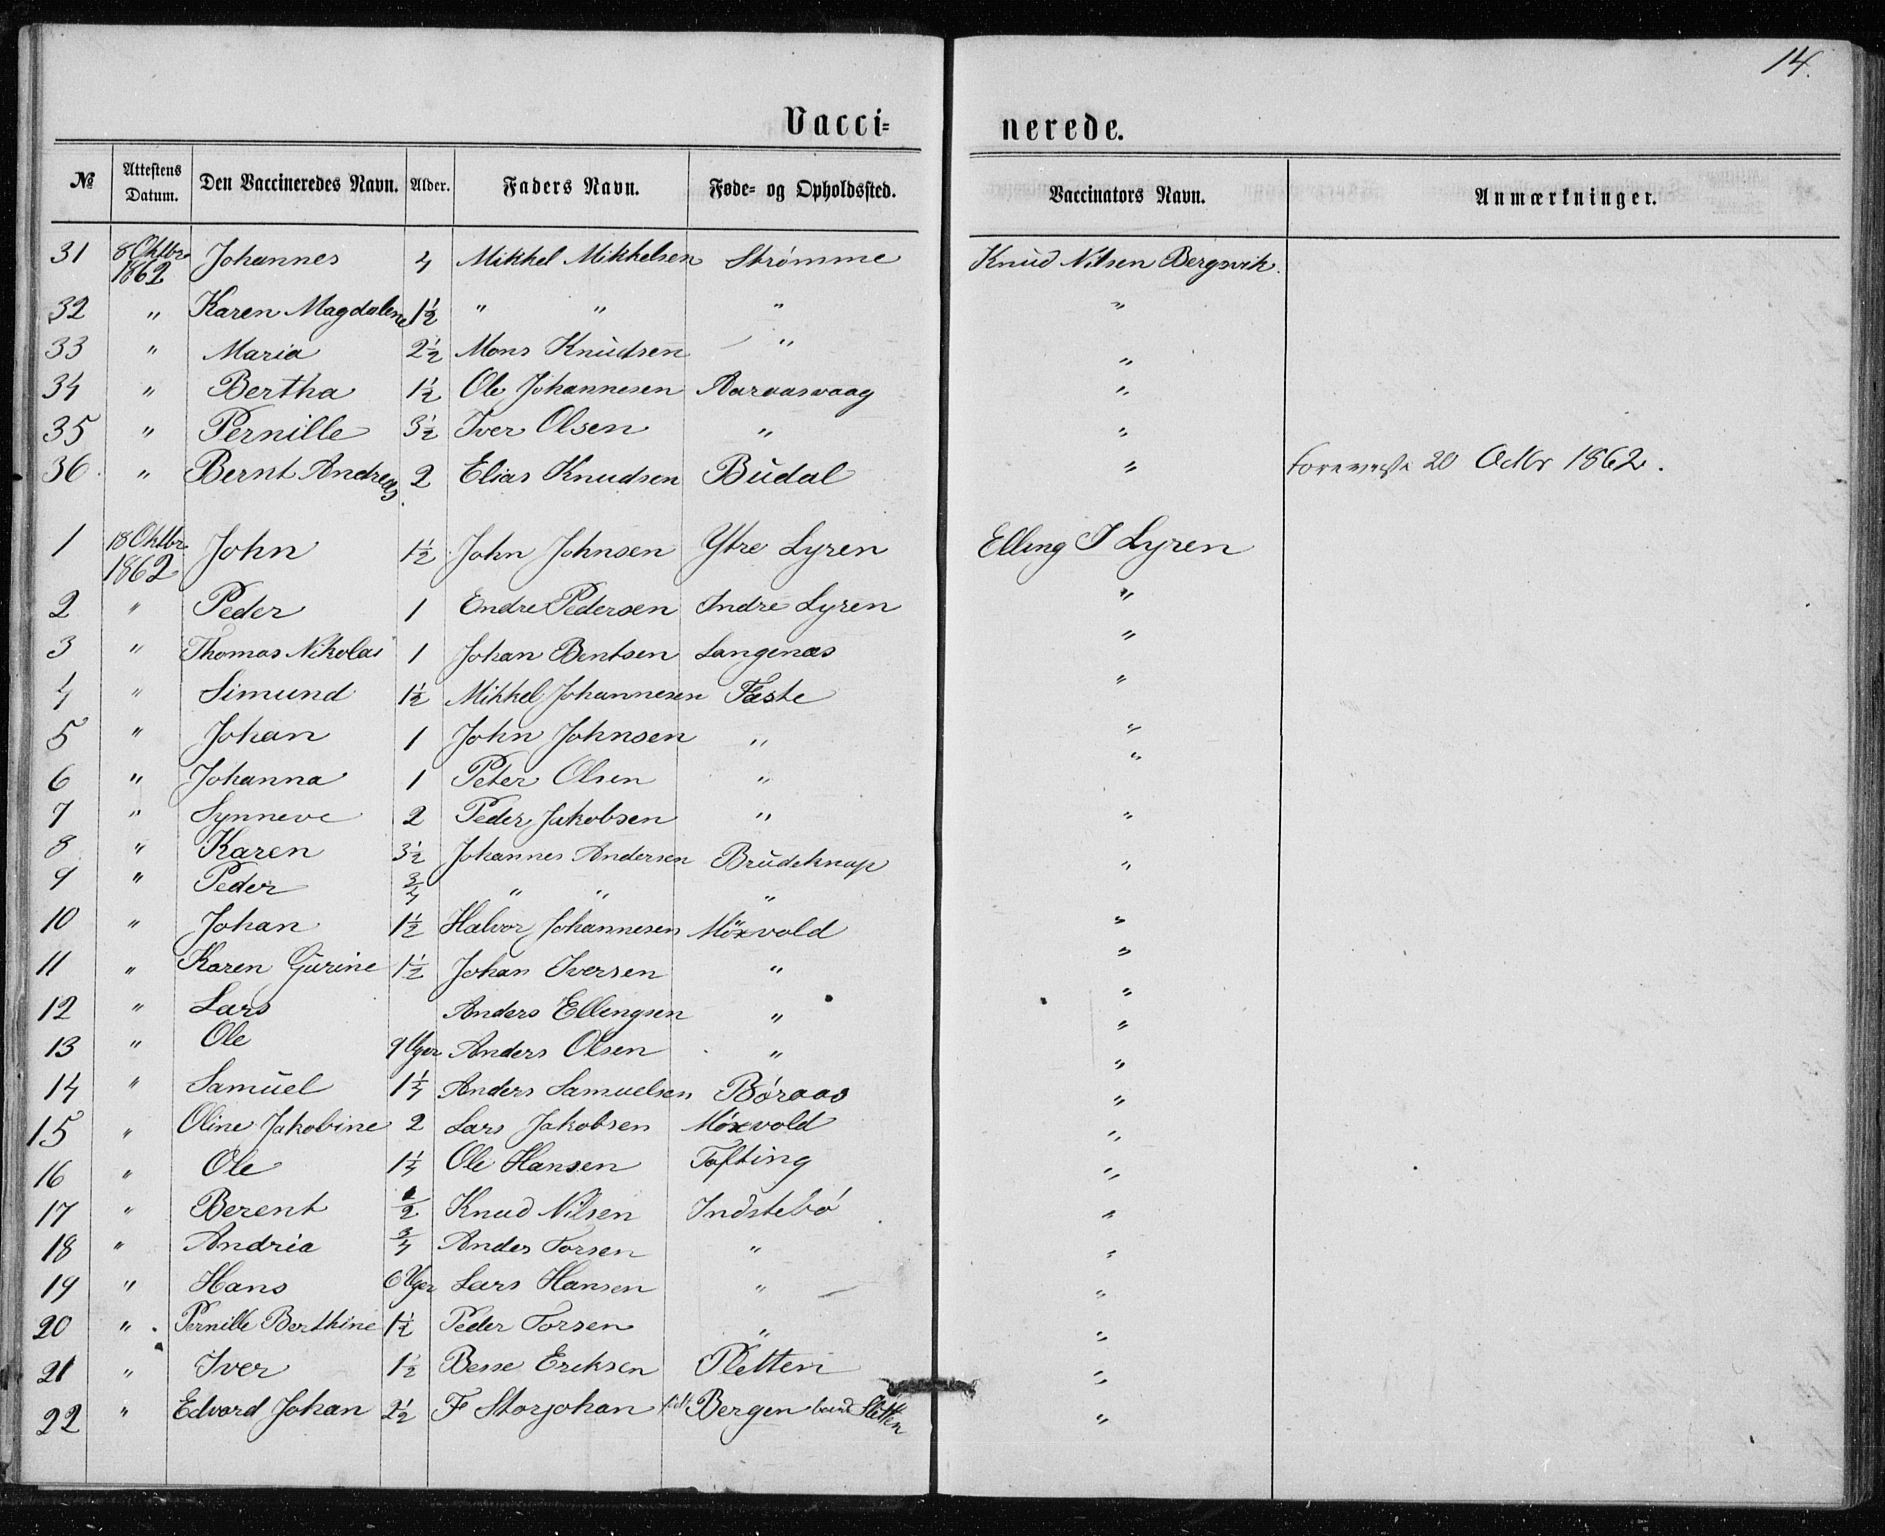 14.
Vacci= nerede.
№ Attestens Datum. Den Vaccineredes Navn. Alder. Faders Navn. Føde= og Opholdssted. Vaccinators Navn. Anmærkninger.
31 8 Oktbr 1862 Johannes 4 Mikkel Mikkelsen Strømme Knud Nilsen Bergsvik.
32 " Karen Magdalene 1½ " " " "
33 " Maria 2½ Mons Knudsen " "
34 " Bertha 1½ Ole Johannesen Aaraasvaag "
35 " Pernille 3½ Iver Olsen " "
36. " Bernt Andreas 2 Elias Knudsen Budal " 20 Octbr 1862.
1 18 Oktbr. 1862 John 1½ John Johnsen Ytre Lyren Elling I Lyren
2 " Peder 1 Endre Pedersen Indre Lyren "
3 " Thomas Nikolai 1 Johan Bentsen Langenæs "
4 " Simund 1½ Mikkel Johannesen Fæste "
5 " Johan 1 John Johnsen " "
6 " Johanna 1 Peter Olsen " "
7 " Synneve 2 Peder Jakobsen " "
8 " Karen 3½ Johannes Andersen Brudeknap "
9 " Peder ¾ " " "
10 " Johan 1½ Halvor Johannesen Möxvold "
11 " Karen Gurine 1½ Johan Iversen " "
12 " Lars Anders Ellingsen " "
13 " Ole 9 Uger Anders Olsen " "
14 " Samuel 1¼ Anders Samuelsen Børaas "
15 " Oline Jakobine 2 Lars Jakobsen Möxvold "
16 " Ole 1¼ Ole Hansen Tofting "
17 " Berent ½ Knud Nilsen Indstebö "
18 " Andria ¾ Andes Torsen " "
19 " Hans 6 Uger Lars Hansen " "
20 " Pernille Berthine 1½ Peder Torsen " "
21 " Iver 1½ Besse Eriksen Sletten "
22 " Edvard Johan 2½ F Storjohan Bergen Sletten "